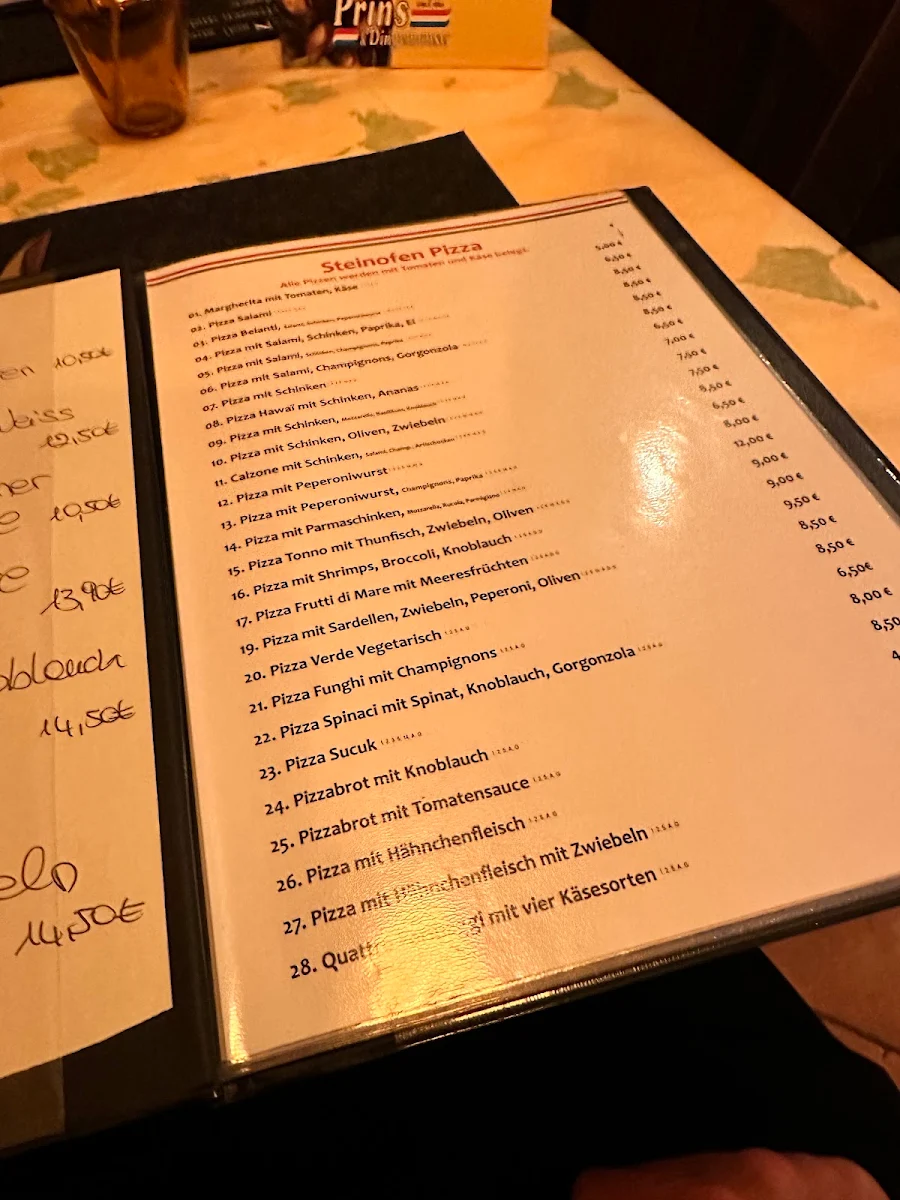 Prins
Steinofen Pizza
Alle Pizzen werden mit Tomaten und Käse belegt.
01. Margherita mit Tomaten, Käse
5,00 €
02. Pizza Salami
6,50 €
03. Pizza Belanti, Salami, Schinken, Peperoniwurst
8,50 €
04. Pizza mit Salami, Schinken, Paprika, Ei
8,50 €
05. Pizza mit Salami, Schinken, Champignons, Paprika
8,50 €
06. Pizza mit Salami, Champignons, Gorgonzola
8,50 €
07. Pizza mit Schinken
6,50 €
08. Pizza Hawaï mit Schinken, Ananas
7,00 €
09. Pizza mit Schinken, Mozzarella, Basilikum, Knoblauch
7,50 €
10. Pizza mit Schinken, Oliven, Zwiebeln
7,50 €
11. Calzone mit Schinken, Salami, Champ., Artischocken
8,50 €
12. Pizza mit Peperoniwurst
6,50 €
13. Pizza mit Peperoniwurst, Champignons, Paprika
8,00 €
14. Pizza mit Parmaschinken, Mozzarella, Rucola, Parmigiano
12,00 €
15. Pizza Tonno mit Thunfisch, Zwiebeln, Oliven
9,00 €
16. Pizza mit Shrimps, Broccoli, Knoblauch
9,00 €
17. Pizza Frutti di Mare mit Meeresfrüchten
9,50 €
19. Pizza mit Sardellen, Zwiebeln, Peperoni, Oliven
8,50 €
20. Pizza Verde Vegetarisch
8,50 €
21. Pizza Funghi mit Champignons
6,50€
22. Pizza Spinaci mit Spinat, Knoblauch, Gorgonzola
8,00 €
23. Pizza Sucuk
8,50
24. Pizzabrot mit Knoblauch
4
25. Pizzabrot mit Tomatensauce
26. Pizza mit Hähnchenfleisch
27. Pizza mit Hähnchenfleisch mit Zwiebeln
28. Quatt gi mit vier Käsesorten
en 10,50€
Weiss
12,50€
ner
e 10,50€
e
13,90€
oblauch
14,50€
eln
14,50€